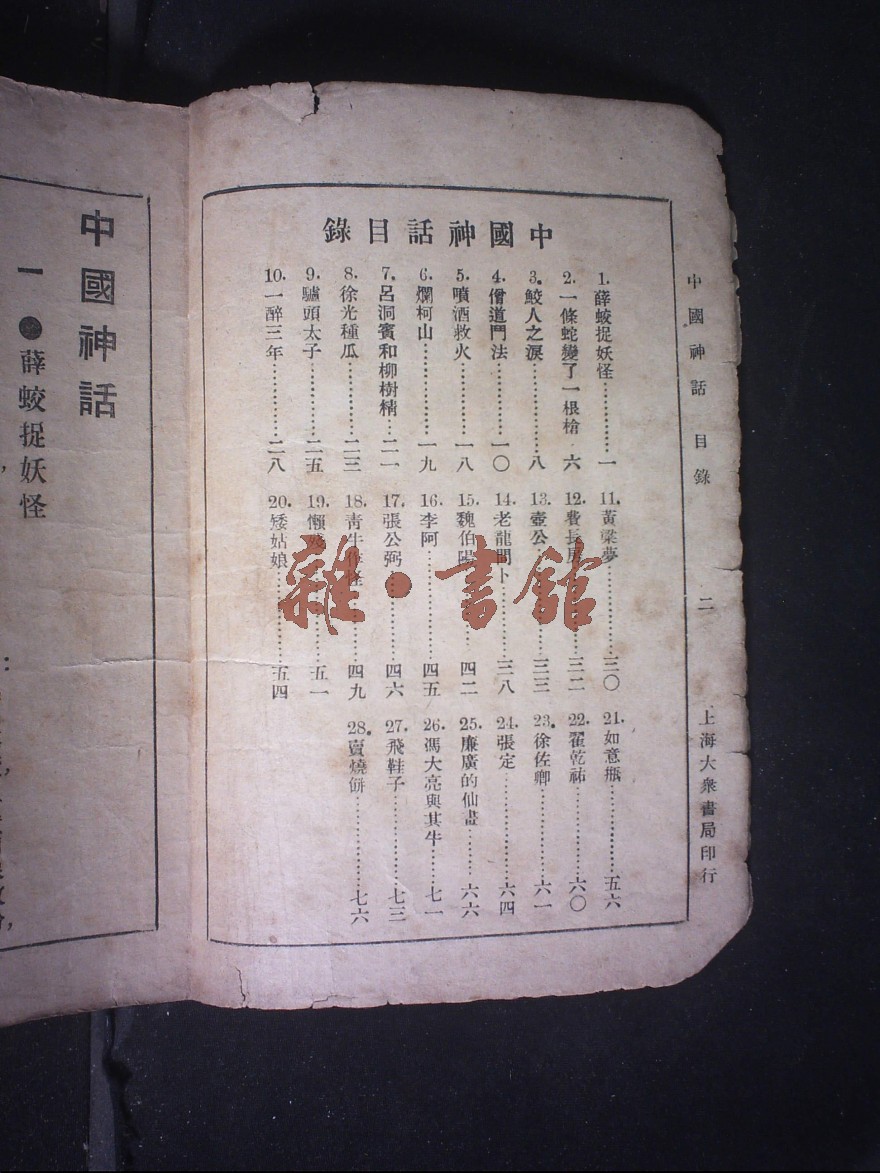 中國神話 目錄 二 上海大衆書局印行
中國神話目錄
1. 薛蛟捉妖怪…………一
2. 一條蛇變了一根槍…六
3. 鮫人之淚…………八
4. 僧道鬥法…………一〇
5. 噴酒救火…………一八
6. 爛柯山…………一九
7. 呂洞賓和柳樹精…二一
8. 徐光種瓜…………二三
9. 驢頭太子…………二五
10. 一醉三年…………二八
11. 黃粱夢…………三〇
12. 費長房…………三二
13. 壺公…………三三
14. 老龍問卜…………三八
15. 魏伯陽…………四二
16. 李阿…………四五
17. 張公弼…………四六
18. 青牛作怪…………四九
19. 懶殘…………五一
20. 矮姑娘…………五四
21. 如意瓶…………五六
22. 翟乾祐…………六〇
23. 徐佐卿…………六一
24. 張定…………六四
25. 廉廣的仙畫…………六六
26. 馮大亮與其牛…七一
27. 飛鞋子…………七三
28. 賣燒餅…………七六
中國神話
一 ● 薛蛟捉妖怪
雜·書館